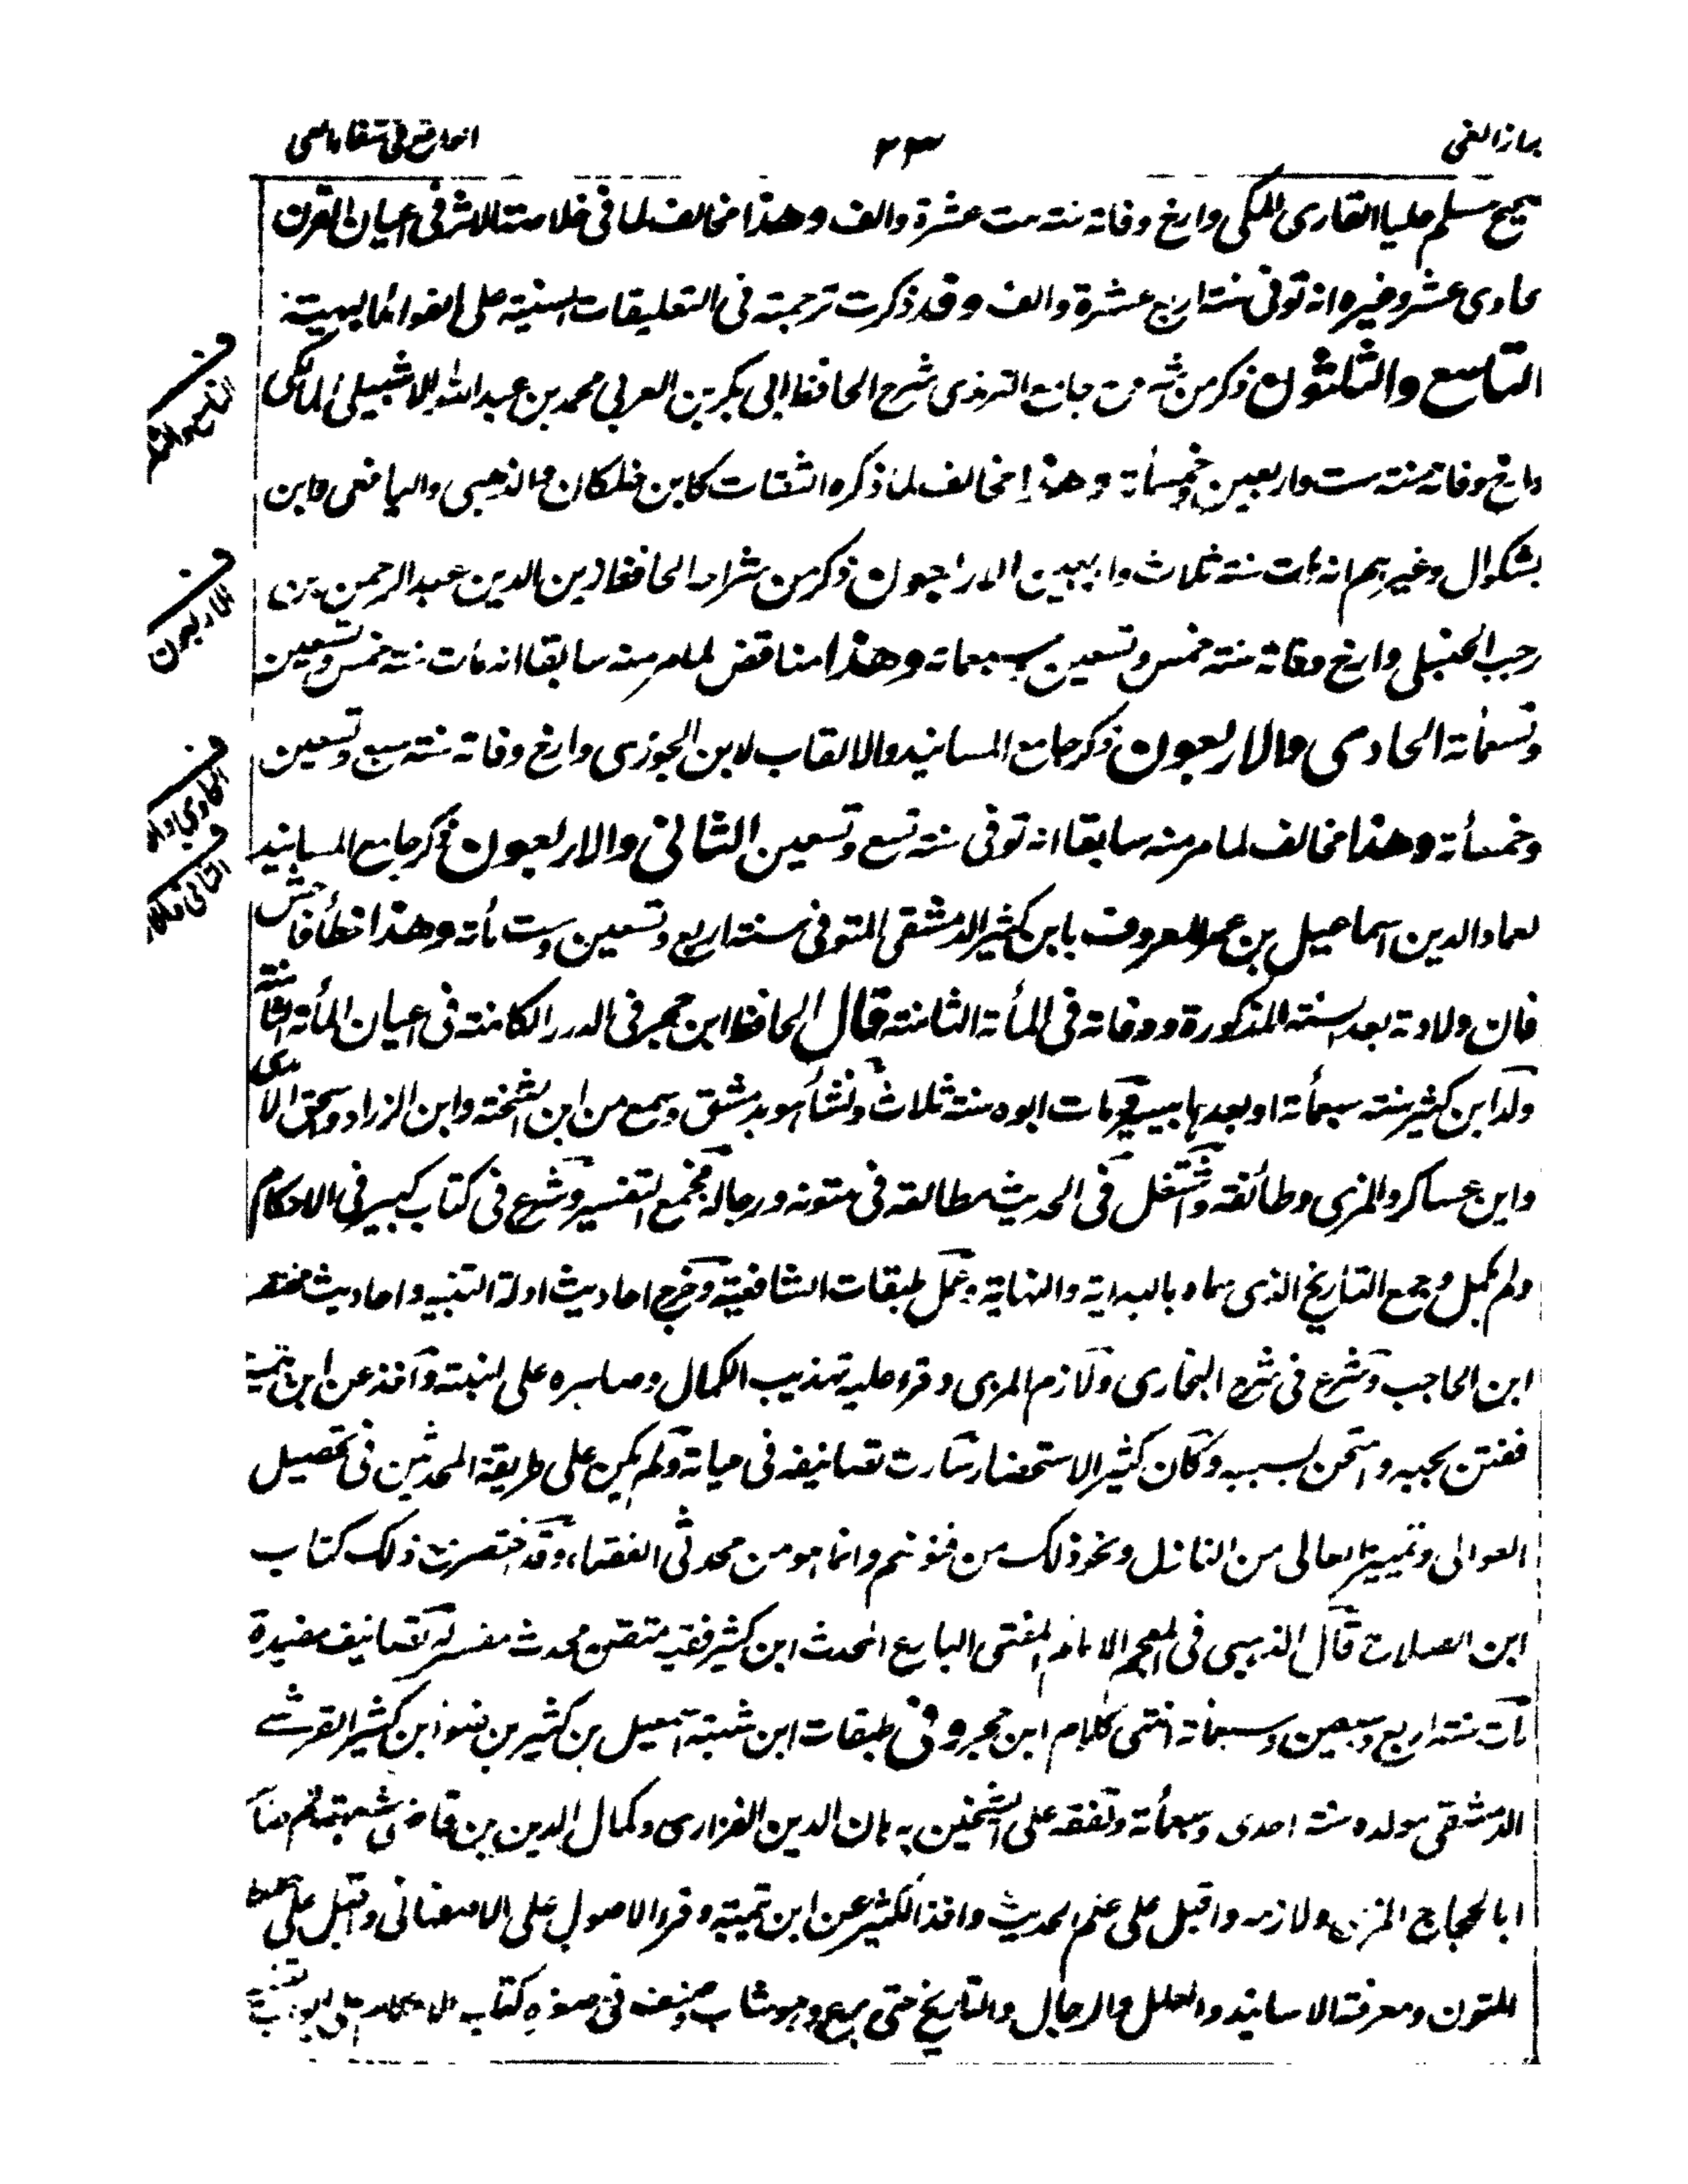 ابراز الغى
٢٣
الواقع فى شفاء العى
صحيح مسلم عليا القارى المكى وارخ وفاته سنة ست عشرة والف وهذا مخالف لما فى خلاصة الاثر فى اعيان القرن
الحادى عشر وغيره انه توفى سنة اربع عشرة والف وقد ذكرت ترجمته فى التعليقات السنية على الفوائد البهية
التاسع والثلثون ذكر من شروح جامع الترمذى شرح الحافظ ابى بكر بن العربى محمد بن عبد الله الاشبيلى المالكى
وارخ وفاته سنة ست واربعين وخمسمأة وهذا مخالف لما ذكره الثقات كابن خلكان والذهبى واليافعى وابن
بشكوال وغيرهم انه مات سنة ثلاث واربعين الاربعون ذكر من شراحه الحافظ زين الدين عبد الرحمن بن
رجب الحنبلى وارخ وفاته سنة خمس وتسعين وسبعمائة وهذا مناقض لما مر منه سابقا انه مات سنة خمس وتسعين
وتسعمأة الحادى والاربعون ذكر جامع المسانيد والالقاب لابن الجوزى وارخ وفاته سنة سبع وتسعين
وخمسمأة وهذا مخالف لما مر منه سابقا انه توفى سنة تسع وتسعين الثانى والاربعون ذكر جامع المسانيد
لعماد الدين اسماعيل بن عمر المعروف بابن كثير الدمشقى المتوفى سنة اربع وتسعين وست مأة وهذا خطأ فاحش
فان ولادته بعد السنة المذكورة ووفاته فى المأة الثامنة قال الحافظ ابن حجر فى الدرر الكامنة فى اعيان المأة الثامنة
ولد ابن كثير سنة سبعمأة او بعدها بيسير ومات ابوه سنة ثلاث ونشأ هو بدمشق وسمع من ابن الشحنة وابن الزراد واسحق الآمدى
وابن عساكر والمزى وطائفة واشتغل فى الحديث مطالعة فى متونه ورجاله فجمع التفسير وشرع فى كتاب كبير فى الاحكام
ولم يكمل وجمع التاريخ الذى سماه بالبداية والنهاية وعمل طبقات الشافعية وخرج احاديث ادلة التنبيه واحاديث مختصر
ابن الحاجب وشرع فى شرح البخارى ولازم المزى وقرء عليه تهذيب الكمال وصاهره على ابنته واخذ عن ابن تيمية
ففتن بحبه وامتحن بسببه وكان كثير الاستحضار سارت تصانيفه فى حياته ولم يكن على طريقة المحدثين فى تحصيل
العوالى وتمييز العالى من النازل ونحو ذلك من فنونهم وانما هو من محدثى الفقهاء وقد اختصر مع ذلك كتاب
ابن الصلاح قال الذهبى فى المعجم الامام المفتى البارع المحدث ابن كثير فقيه متقن ومحدث مفسر له تصانيف مفيدة
مات سنة اربع وسبعين وسبعمائة انتهى كلام ابن حجر وفى طبقات ابن شهبة اسمعيل بن كثير بن ضوء ابن كثير القرشى
الدمشقى مولده سنة احدى وسبعمأة وتفقه على الشيخين برهان الدين الفزارى وكمال الدين بن قاضى شهبة ثم صاهر
ابا الحجاج المزى ولازمه واقبل على علم الحديث واخذ الكثير عن ابن تيمية وقرء الاصول على الاصفهانى واقبل على حفظ
المتون ومعرفة الاسانيد والعلل والرجال والتاريخ حتى برع وهو شاب وصنف فى صغره كتاب الاحكام على ابواب التنبيه
ف
ف
الاربعون
ف
ف